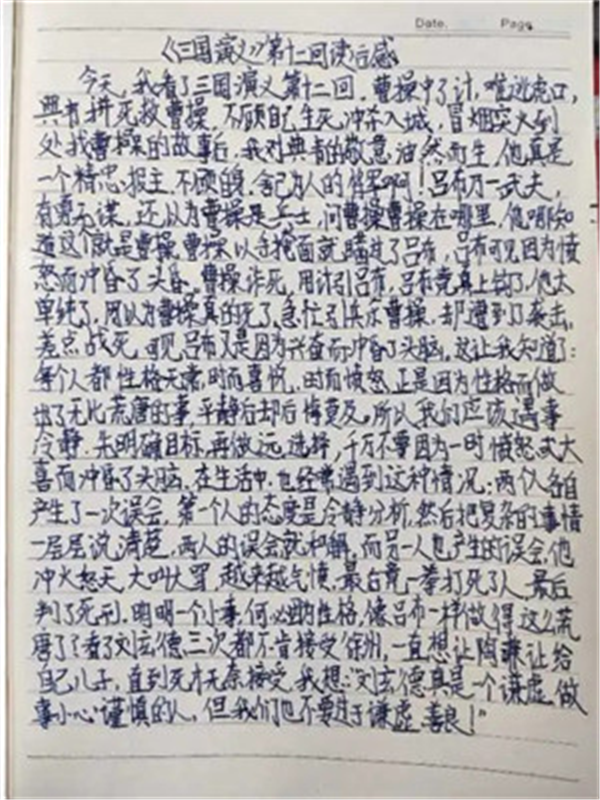 Date. Page
《三国演义》第十二回读后感
今天,我看了三国演义第十二回,曹操中了计,唯逃虎口,
典韦拼死救曹操,不顾自己生死冲东入城,冒烟突火到
处找曹操的故事后,我对典韦的敬意油然而生,他真是
一个精忠报主,不顾自身,舍己为人的将军啊!吕布乃一武夫,
有勇无谋,还以为曹操是兵士,问曹操曹操在哪里,他哪知
道这个就是曹操,曹操以手掩面就瞒过了吕布,吕布可见因为愤
怒而冲昏了头昏。曹操诈死,用计引吕布,吕布竟真上钩了,他太
单纯了,因以为曹操真的死了,急忙引兵杀曹操,却遭到了袭击,
差点战死,可见吕布又是因为兴奋而冲昏了头脑,这让我知道了:
每个人都性格无常,时而喜悦,时而愤怒,正是因为性格而做
出了无比荒唐的事,平静后却后悔莫及,所以我们应该遇事
冷静,先明确目标,再做选择,千万不要因为一时愤怒或大
喜而冲昏了头脑,在生活中,也经常遇到这种情况:两个人各自
产生了一次误会,第一个人的态度是冷静分析,然后把复杂的事情
一层层说清楚,两人的误会就和解,而另一人也产生的误会,他
冲火怒天,大叫大骂,越来越气愤,最后竟一拳打死了人,最后
判了死刑,明明一个小事,何必的性格,像吕布一样做得这么荒
唐了?看了刘玄德三次都不肯接受徐州,一直想让陶谦让给
自己儿子,直到死才无奈接受,我想:"刘玄德真是一个谦虚,做
事小心谨慎的人,但我们也不要过于谦虚,善良!"